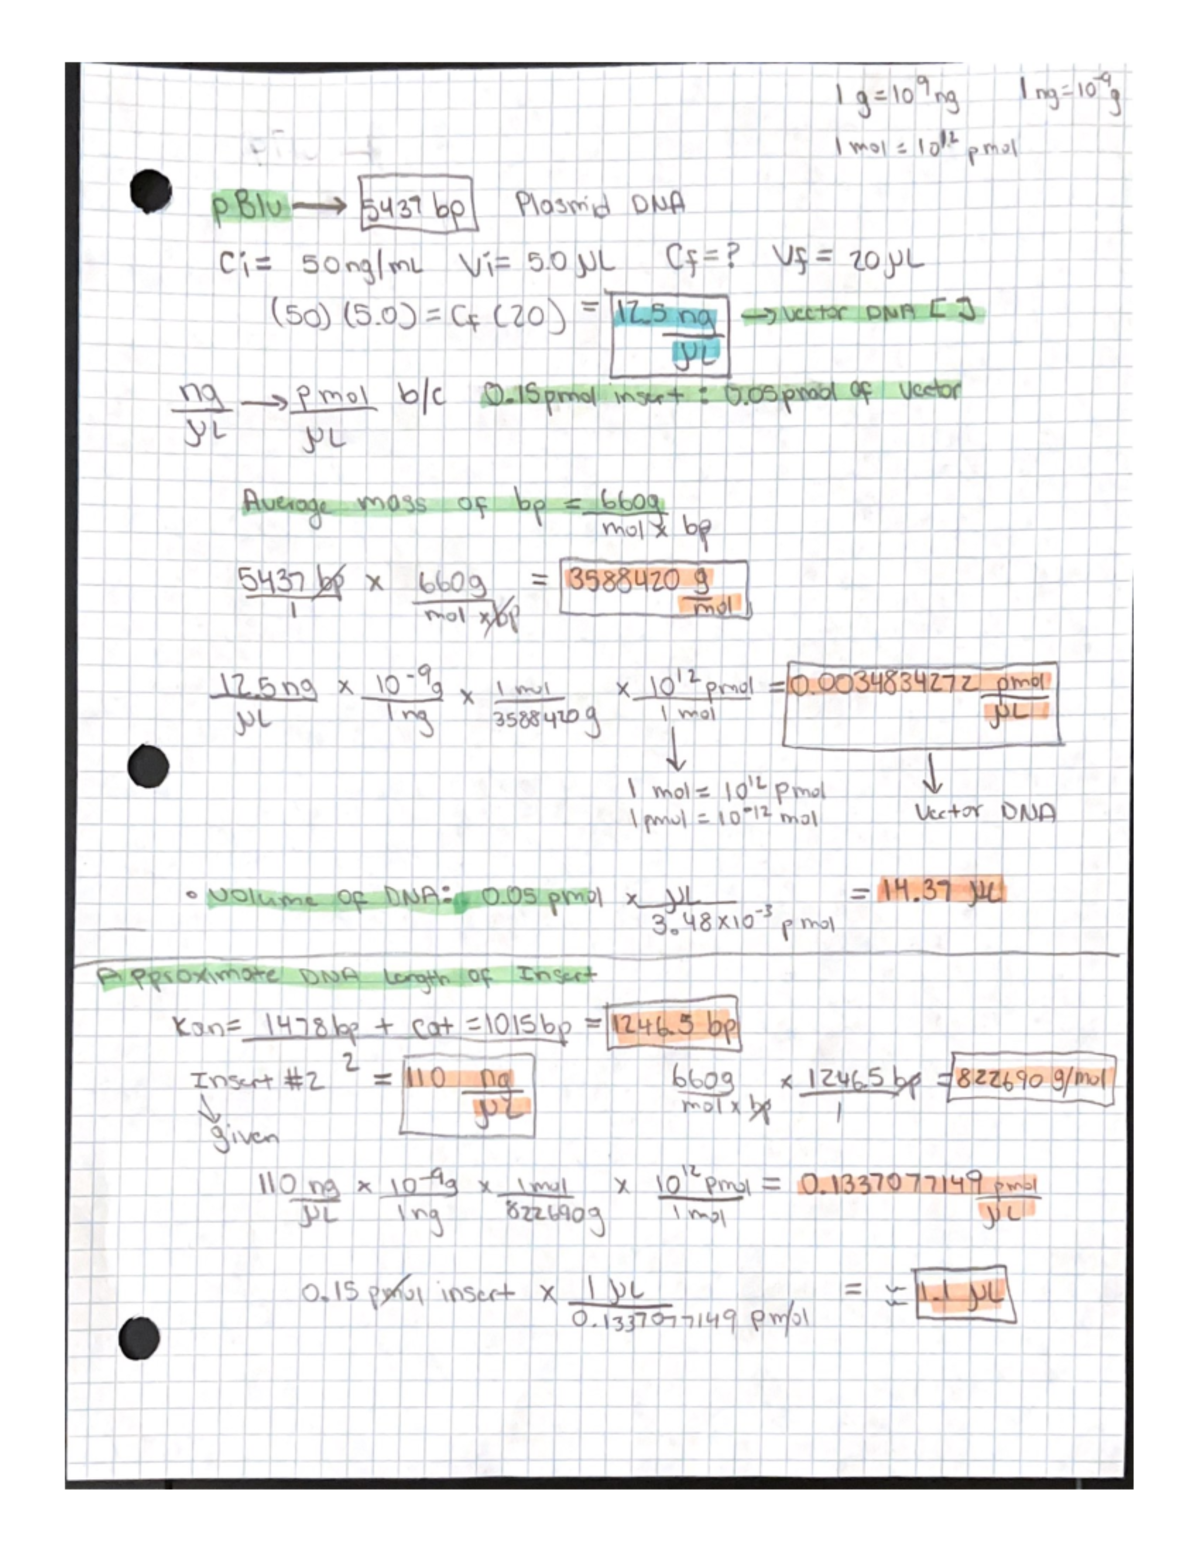 1 g = 10⁹ ng 1 ng = 10⁻⁹ g
1 mol = 10¹² pmol
pBlu → 5437 bp Plasmid DNA
Ci = 50ng/mL Vi = 5.0 µL Cf = ? Vf = 20 µL
(50) (5.0) = Cf (20) = 12.5 ng/µL → Vector DNA [ ]
ng/µL → pmol/µL b/c 0.15pmol insert : 0.05pmol of vector
Average mass of bp = 660g / mol x bp
5437 bp / 1 x 660g / mol x bp = 3588420 g/mol
12.5 ng / µL x 10⁻⁹g / 1 ng x 1 mol / 3588420 g x 10¹² pmol / 1 mol = 0.0034834272 pmol/µL
↓ ↓
1 mol = 10¹² pmol Vector DNA
1 pmol = 10⁻¹² mol
• Volume of DNA: 0.05 pmol x µL / 3.48x10⁻³ pmol = 14.37 µL
Approximate DNA Length of Insert
Kan = 1478bp + Cat = 1015bp / 2 = 1246.5 bp
Insert #2 = 110 ng/µL 660g / mol x bp x 1246.5 bp / 1 = 822690 g/mol
↓
given
110 ng / µL x 10⁻⁹g / 1 ng x 1 mol / 822690g x 10¹² pmol / 1 mol = 0.1337077149 pmol/µL
0.15 pmol insert x 1 µL / 0.1337077149 pmol = ≈ 1.1 µL